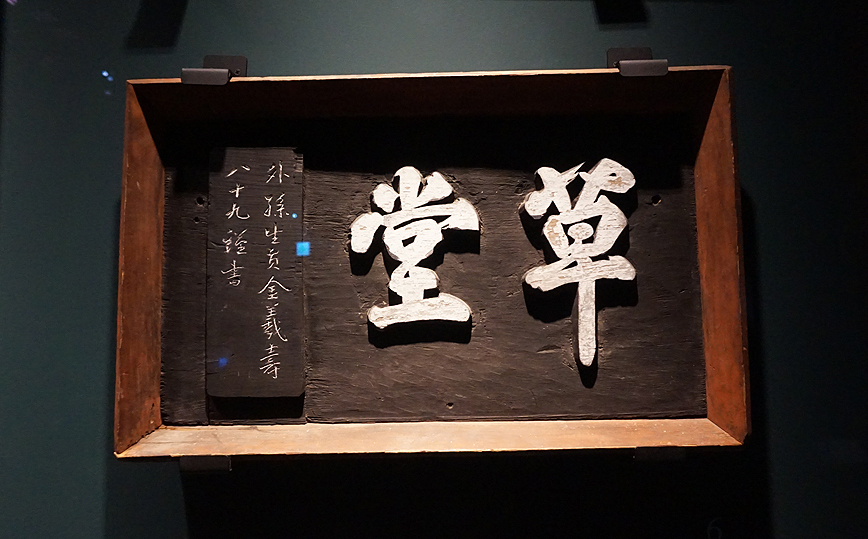 草堂
外孫生員金羲壽
八十九謹書